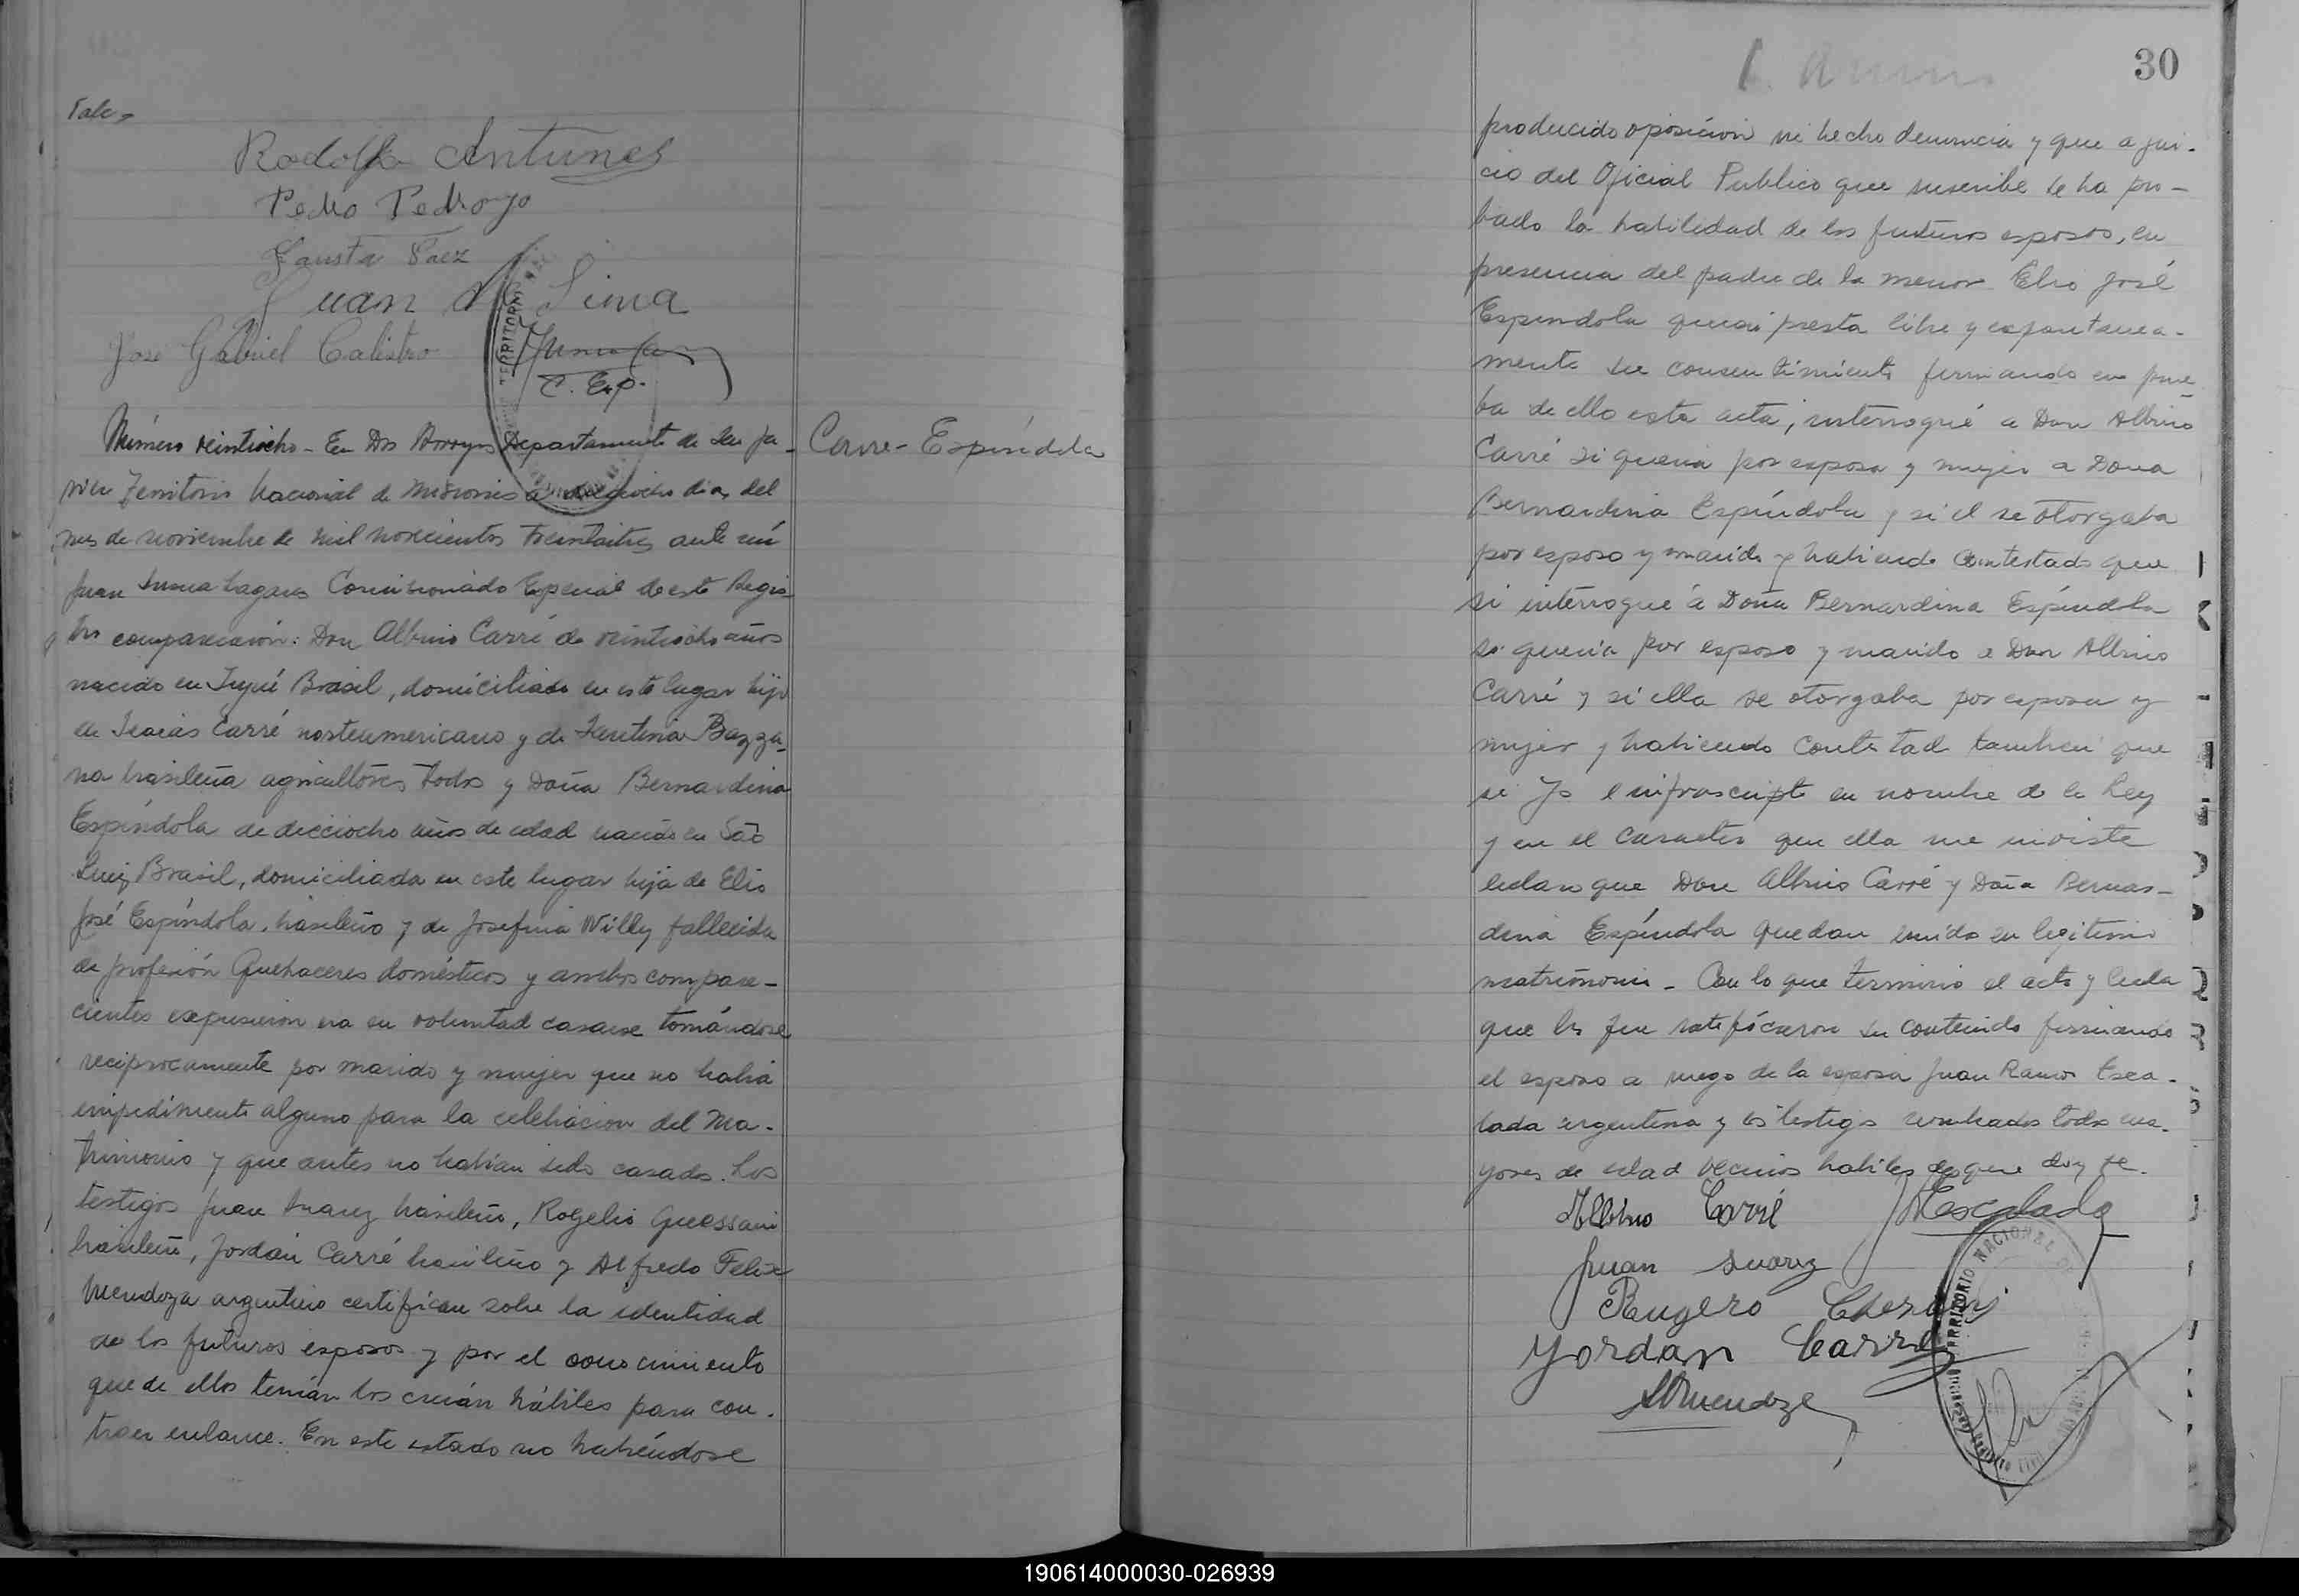 Vale=
Rodolfo Antunes
Pedro Pedrozo
Fausta Paez
Juan de Lima
José Gabriel Calistro
C. Esp.
TERRITORIO
Número veintiocho - En Dos Arroyos Departamento de San Ja-
vier Territorio Nacional de Misiones a dieciocho dias del
mes de noviembre de mil novecientos treintaitres ante mí
Juan Comisionado Especial de este Regis-
tro comparecieron: Don Albino Carré de veintiocho años
nacido en Ijuí Brasil, domiciliado en este lugar hijo
de Isaias Carré norteamericano y de Bazza-
na brasileña agricultores todos y Doña Bernardina
Espíndola de dieciocho años de edad nacida en São
Luiz Brasil, domiciliada en este lugar hija de Elio
José Espíndola, brasileño y de Josefina Willy fallecida
de profesión Quehaceres domésticos y ambos compare-
cientes expusieron era su voluntad casarse tomándose
reciprocamente por marido y mujer que no había
impedimento alguno para la celebracion del Ma-
trimonio y que antes no habían sido casados. Los
testigos Juan Suarez brasileño, Rogelio
brasileño, Jordán Carré brasileño y Alfredo Felix
Mendoza argentino certifican sobre la identidad
de los futuros esposos y por el conocimiento
que de ellos tenían los creían hábiles para con-
traer enlace. En este estado no habiéndose
Carre - Espíndola
30
producido oposición ni hecho denuncia y que a jui-
cio del Oficial Publico que suscribe se ha pro-
bado la habilidad de los futuros esposos, en
presencia del padre de la menor Elio José
Espindola quien presta libre y espontanea-
mente su consentimiento firmando en prue
ba de ello esta acta, interrogué a Don Albino
Carré si queria por esposa y mujer a Doña
Bernardina Espíndola y si él se otorgaba
por esposo y marido y habiendo contestado que
si interrogué a Doña Bernardina Espíndola
si queria por esposo y marido a Don Albino
Carré y si ella se otorgaba por esposa y
mujer y habiendo contestado tambien que
si Yo el infrascripto en nombre de la Ley
y en el caracter que ella me inviste
declaro que Don Albino Carré y Doña Bernar-
dina Espíndola quedan unidos en legitimo
matrimonio - Con lo que terminó el acto y leida
que les fue ratificaron su contenido firmando
el esposo a ruego de la esposa Juan Ramon Esca-
lada argentino y los testigos nombrados todos ma-
yores de edad vecinos habiles de que doy fe.
Albino Carré
Escalada
Juan Suarez
Rugero
Yordan Carre
Mendoza
TERRITORIO NACIONAL
190614000030-026939